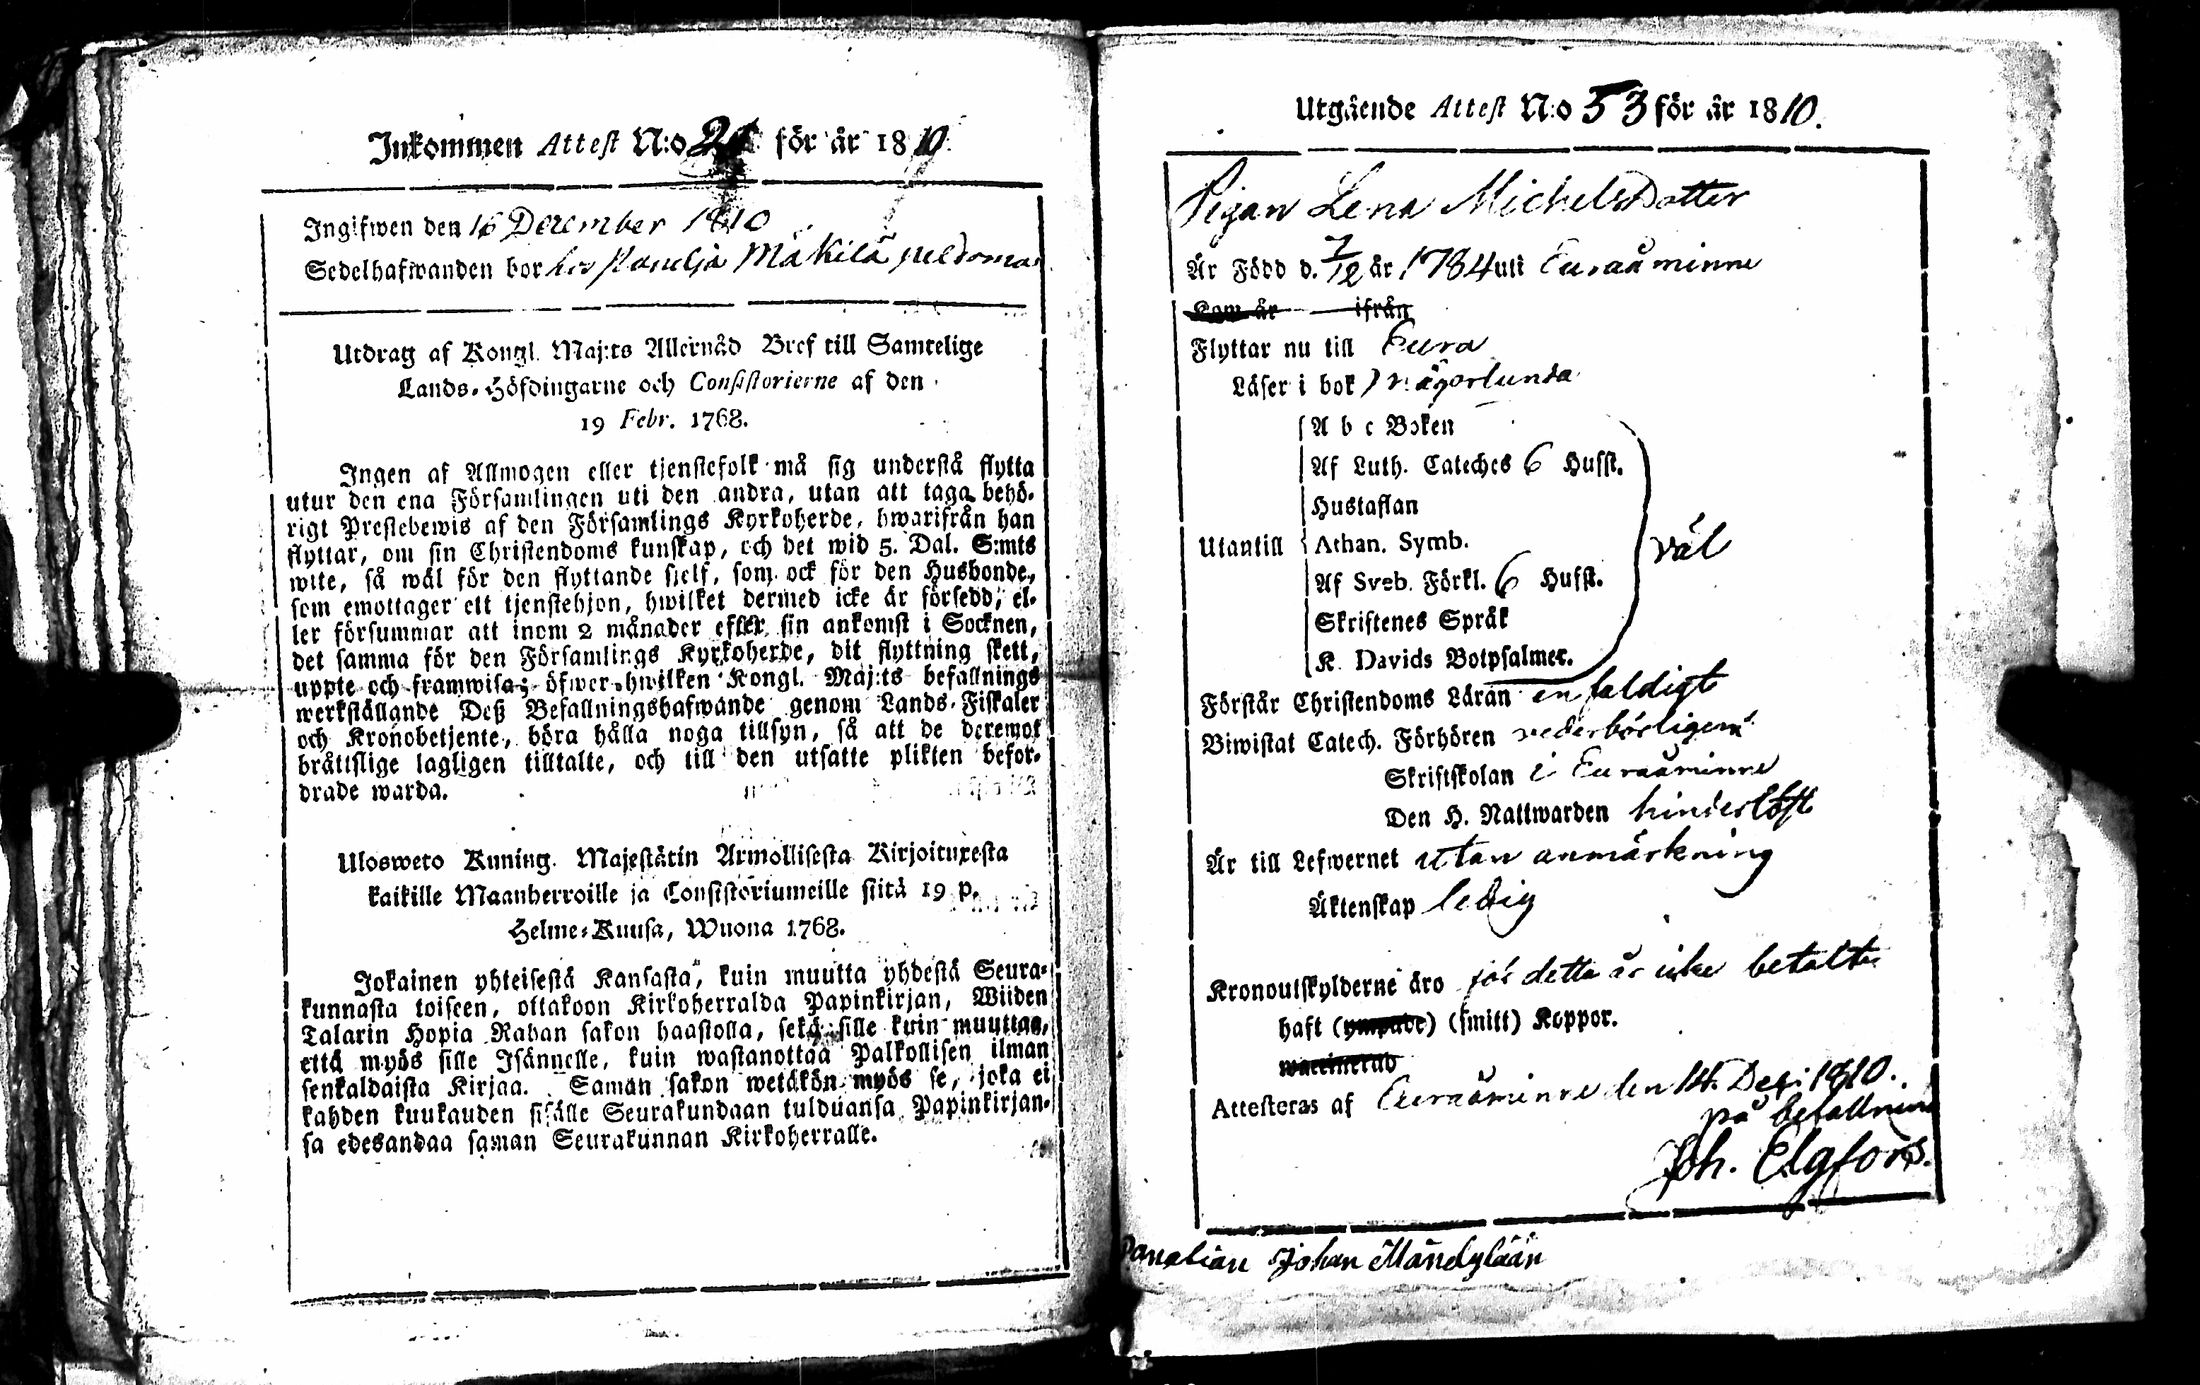 Inkommen Attest N:o för år 1810.
Ingifwen den 16 December 1810
Sedelhafwanden bor hos Panelja Mäkilä
Utdrag af Kongl. Maj:ts Allernåd Bref till Samtelige
Lands-Höfdingarne och Consistorierne af den
19 Febr. 1768.
Ingen af Allmogen eller tjenstefolk må sig understå flytta
utur den ena Församlingen uti den andra, utan att taga behö-
rigt Prestebewis af den Församlings Kyrkoherde, hwarifrån han
flyttar, om sin Christendoms kunskap, och det wid 5. Dal. S:mts
wite, så wäl för den flyttande sielf, som ock för den Husbonde,
som emottager ett tjenstehjon, hwilket dermed icke är försedd, el-
ler försummar att inom 2 månader efter sin ankomst i Socknen,
det samma för den Församlings Kyrkoherde, dit flyttning skett,
uppte och framwisa; öfwer hwilken Kongl. Maj:ts befallnings
werkställande Deß Befallningshafwande genom Lands-Fiskaler
och Kronobetjente, böra hålla noga tillsyn, så att de deremot
bråttslige lagligen tilltalte, och till den utsatte plikten befor-
drade warda.
Ulosweto Kuning. Majestätin Armollisesta Kirjoituxesta
kaikille Maanherroille ja Consistoriumeille siitä 19 p.
Helme-Kuusa, Wuona 1768.
Jokainen yhteisestä Kansasta, kuin muutta yhdestä Seura-
kunnasta toiseen, ottakoon Kirkoherralda Papinkirjan, Wiiden
Talarin Hopia Rahan sakon haastolla, sekä sille kuin muuttaa,
että myös sille Isännelle, kuin wastanottaa Palkollisen ilman
senkaldaista Kirjaa. Saman sakon wetäkön myös se, joka ei
kahden kuukauden sisälle Seurakundaan tulduansa Papinkirjan-
sa edesandaa saman Seurakunnan Kirkoherralle.
Utgående Attest N:o 53 för år 1810.
Pigan Lena MichelsDotter
Är Född d. 7/12 år 1784 uti Euraåminne
Kom år ifrån
Flyttar nu till Eura
Läser i bok någorlunda
A b c Boken
Af Luth. Cateches 6 Hufst.
Hustaflan
Utantill Athan. Symb. väl
Af Sveb. Förkl. 6 Hufst.
Skriftenes Språk
K. Davids Botpsalmer.
Förstår Christendoms Läran enfaldigt
Biwistat Catech. Förhören vederbörligen
Skriftskolan i Euraåminne
Den H. Nattwarden hinderlöst
Är till Lefwernet utan anmärkning
Äktenskap ledig
Kronoutskylderne äro för detta år icke betalte
haft (ympade) (smitt) Koppor.
waccinerad
Attesteras af Euraåminne den 14. Dec: 1810.
på befallning
Joh. Elgfors.
Panelian Johan